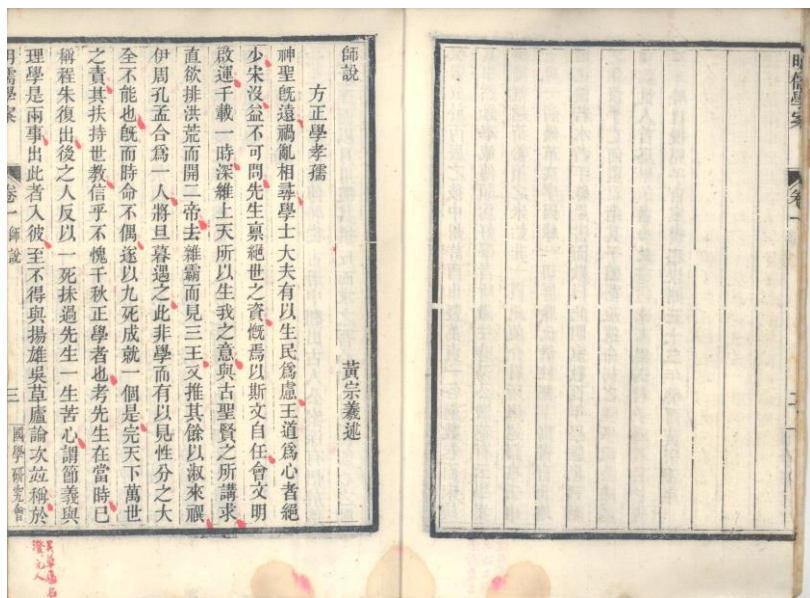 明儒學案
卷一
二
師說
黃宗羲述
方正學孝孺
神聖旣遠禍亂相尋學士大夫有以生民爲慮王道爲心者絕
少宋沒益不可問先生禀絕世之資慨焉以斯文自任會文明
啟運千載一時深維上天所以生我之意與古聖賢之所講求
直欲排洪荒而開二帝去雜霸而見三王又推其餘以淑來禩
伊周孔孟合爲一人將旦暮遇之此非學而有以見性分之大
全不能也旣而時命不偶遂以九死成就一個是完天下萬世
之責其扶持世教信乎不愧千秋正學者也考先生在當時已
稱程朱復出後之人反以一死抹過先生一生苦心謂節義與
理學是兩事出此者入彼至不得與揚雄吳草廬論次並稱於
明儒學案
卷一師說
三
國學研究會
吳草廬名
澄元人